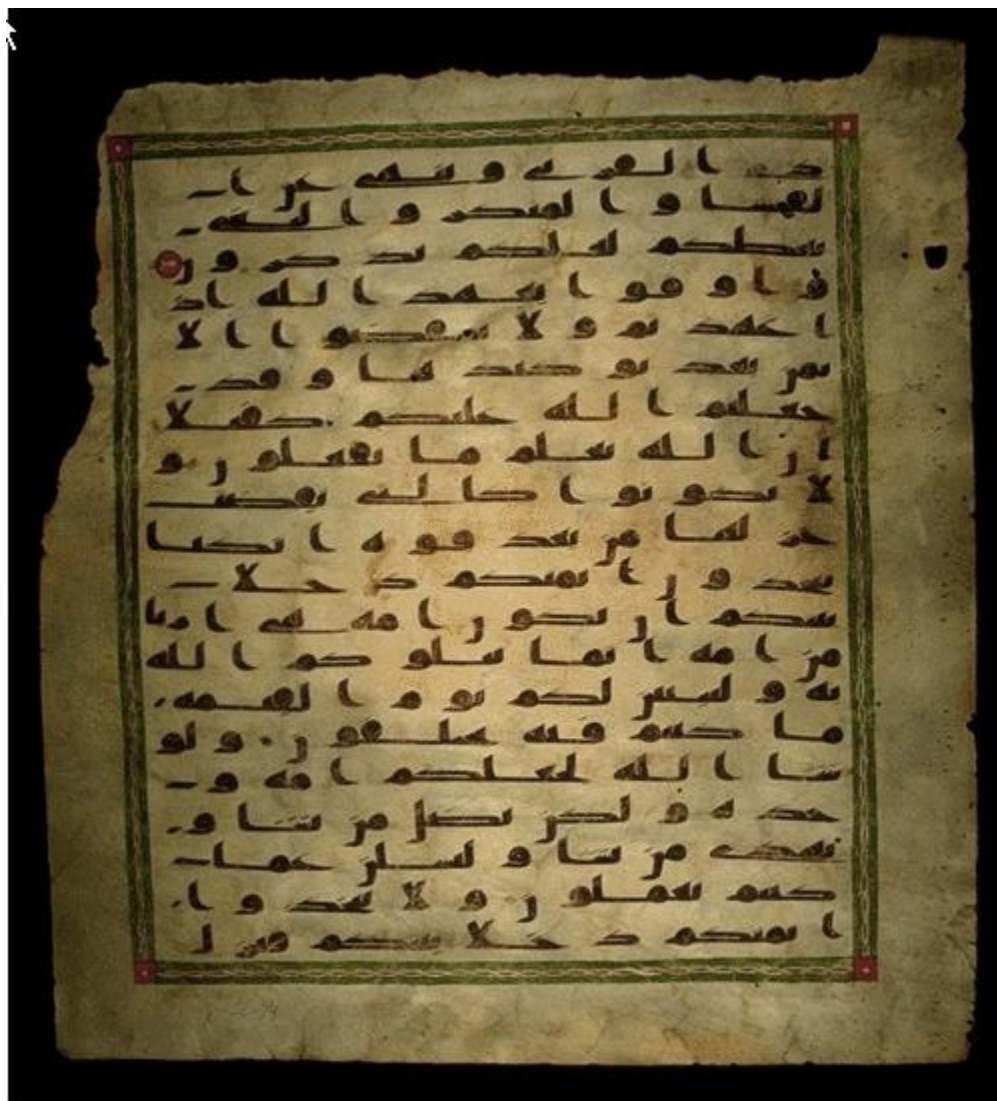 ذي القربى وينهى عن ا
لفحشا والمنكر والبغي
يعظكم لعلكم تذكرون
واوفوا بعهد الله اذ
ا عهدتم ولا تنقضوا الا
يمن بعد توكيدها وقد
جعلتم الله عليكم كفيلا
ان الله يعلم ما تفعلون و
لا تكونوا كالتي نقضت
غزلها من بعد قوة انكثا
تتخذون ايمنكم دخلا
بينكم ان تكون امة هي اربى
من امة انما يبلوكم الله
به وليبينن لكم يوم القيمة
ما كنتم فيه تختلفون ولو
شا الله لجعلكم امة و
حدة ولكن يضل من يشا و
يهدي من يشا ولتسلن عما
كنتم تعملون ولا تتخذوا
ايمنكم دخلا بينكم فتزل